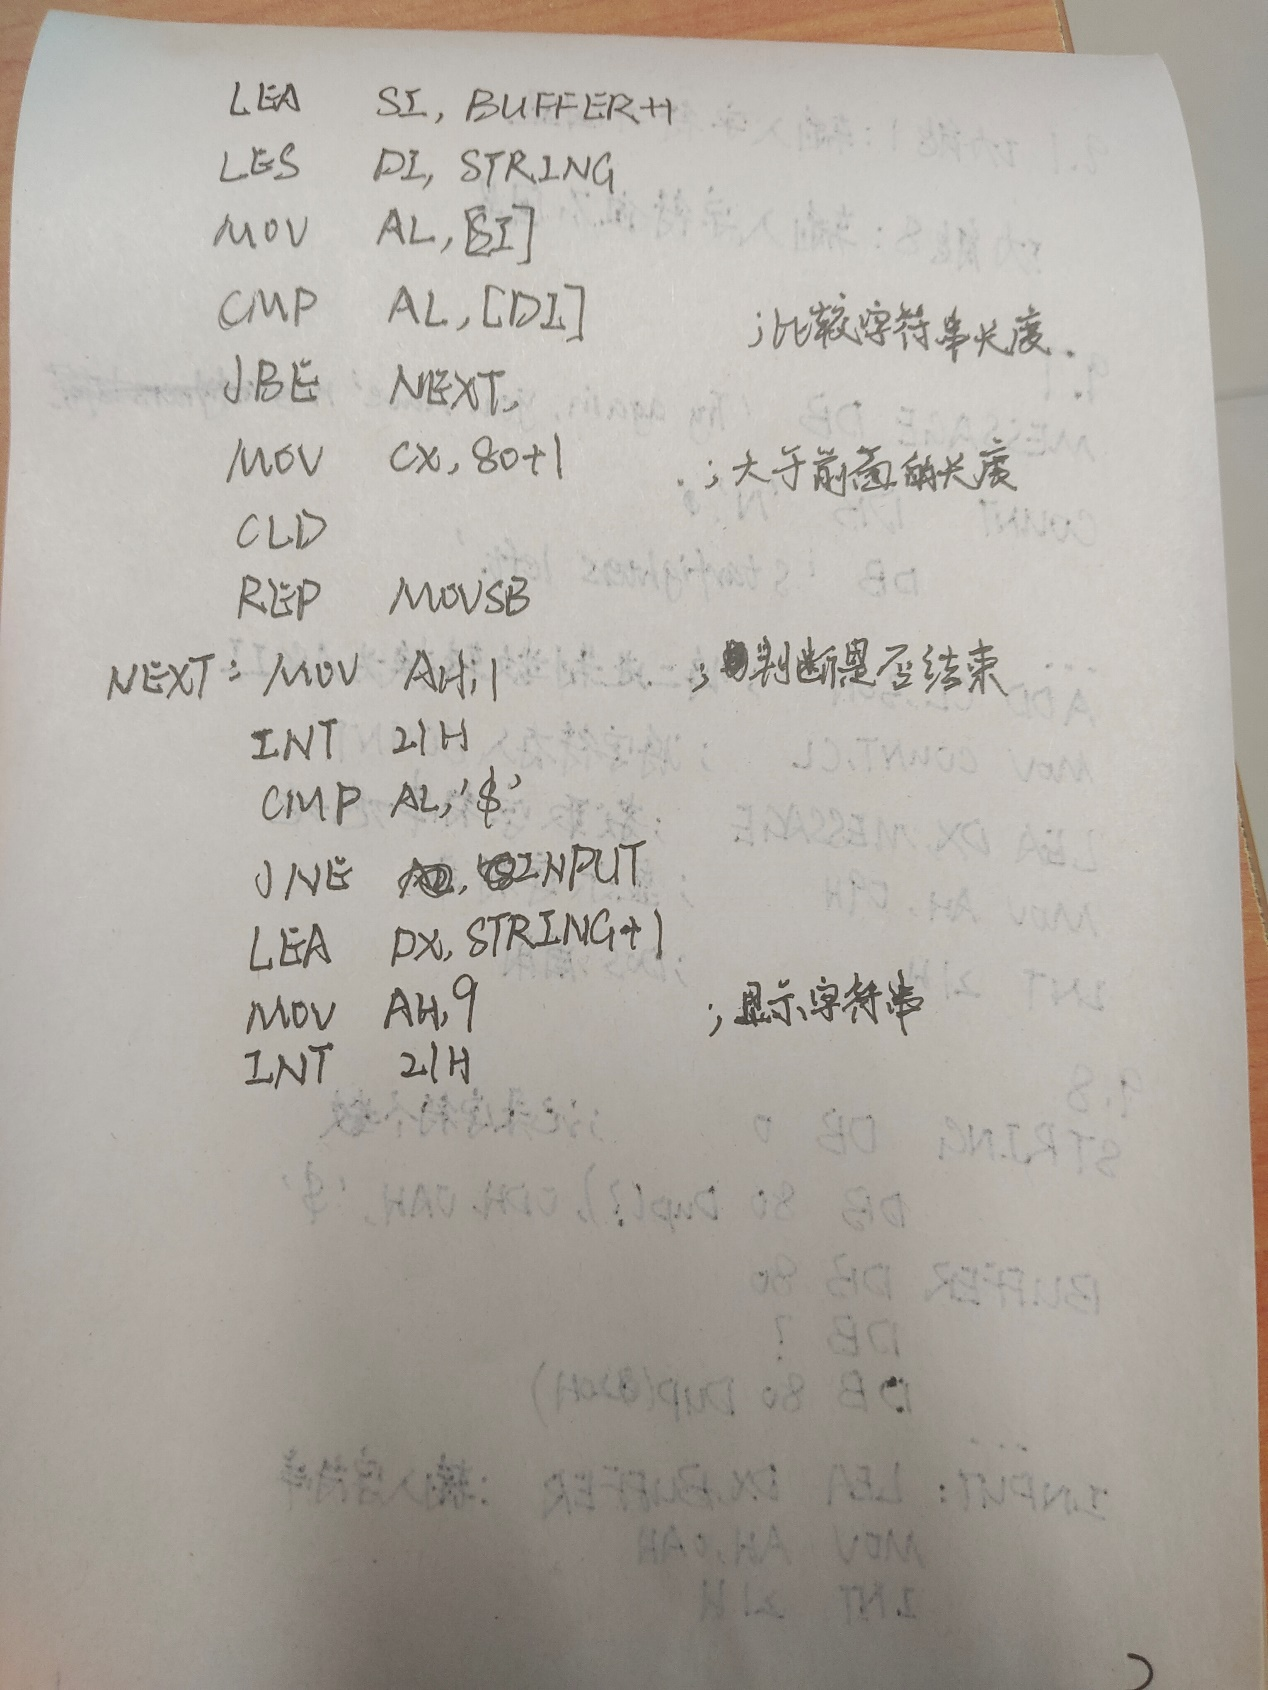 LEA SI, BUFFER+1
LES DI, STRING
MOV AL, [SI]
CMP AL, [DI] ;比较字符串长度.
JBE NEXT,
MOV CX, 80+1 ;大于前面的长度
CLD
REP MOVSB
NEXT: MOV AH, 1 ;判断是否结束
INT 21H
CMP AL, '$'
JNE INPUT
LEA DX, STRING+1
MOV AH, 9 ;显示字符串
INT 21H